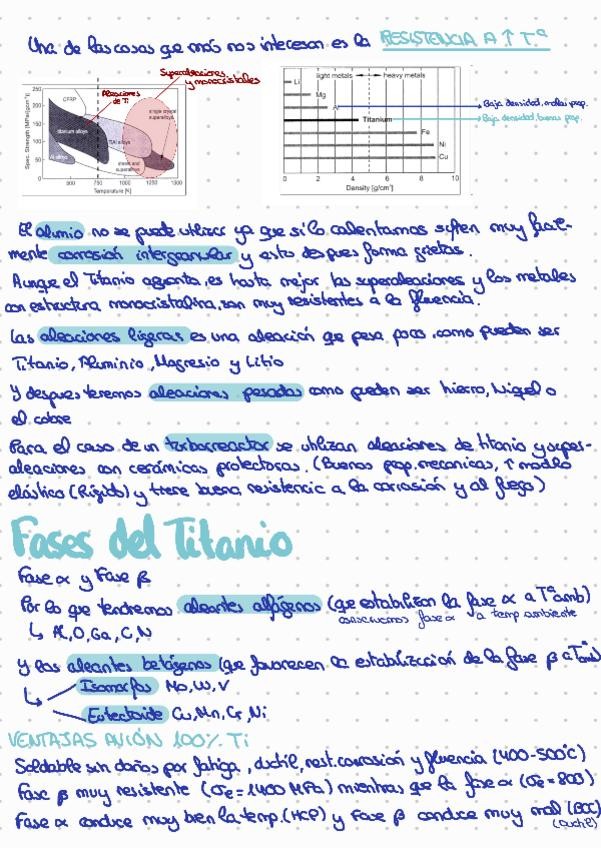 Una de las cosas que más nos interesan es la RESISTENCIA A ↑ Tª
Superaleaciones y monocristales
Aleaciones de Ti
CFRP
titanium alloys
Al alloys
TiAl alloys
single crystal superalloys
steels and superalloys
Spec. Strength [MPa/(gcm⁻³)]
250
200
150
100
50
0
500 750 1000 1200 1300
Temperature [K]
light metals heavy metals
Li
Mg
Al
Titanium
Fe
Ni
Cu
0 2 4 6 8 10
Density [g/cm³]
Baja densidad, malas prop.
Baja densidad, buenas prop.
El alumio no se puede utilizar ya que si lo calentamos sufren muy facil-
mente corrosión intergranular y esto despues forma grietas.
Aunqe el Titanio aguanta, es hasta mejor las superaleaciones y los metales
con estructura monocristalina, son muy resistentes a la fluencia.
Las aleaciones ligeras es una aleación que pesa poco, como pueden ser
Titanio, Aluminio, Magnesio y Litio
Y despues tenemos aleaciones pesadas como pueden ser hierro, Niquel o
el cobre
Para el caso de un turborreactor se utilizan aleaciones de titanio y super-
aleaciones con cerámicas protectoras. (Buenas prop. mecanicas, ↑ modulo
elástico (Rígido) y tiene buena resistencia a la corrosión y al fuego)
Fases del Titanio
Fase α y Fase β
Por lo que tendremos aleantes alfágenos (que estabilizan la fase α a Tª amb)
conseguimos fase α a temp ambiente
↳ Al, O, Ga, C, N
Y las aleantes betágenos (que favorecen la estabilización de la fase β a Tª amb)
Isomorfos Mo, W, V
Eutectoide Cu, Mn, Cr, Ni
VENTAJAS AVIÓN 100% Ti
Soldable sin daños por fatiga, ductil, resit. corrosión y fluencia (400-500°C)
Fase β muy resistente (σe = 1400 MPa) mientras que la fase α (σe = 800)
Fase α conduce muy bien la temp. (HCP) y Fase β conduce muy mal (BCC)
(Ductil)